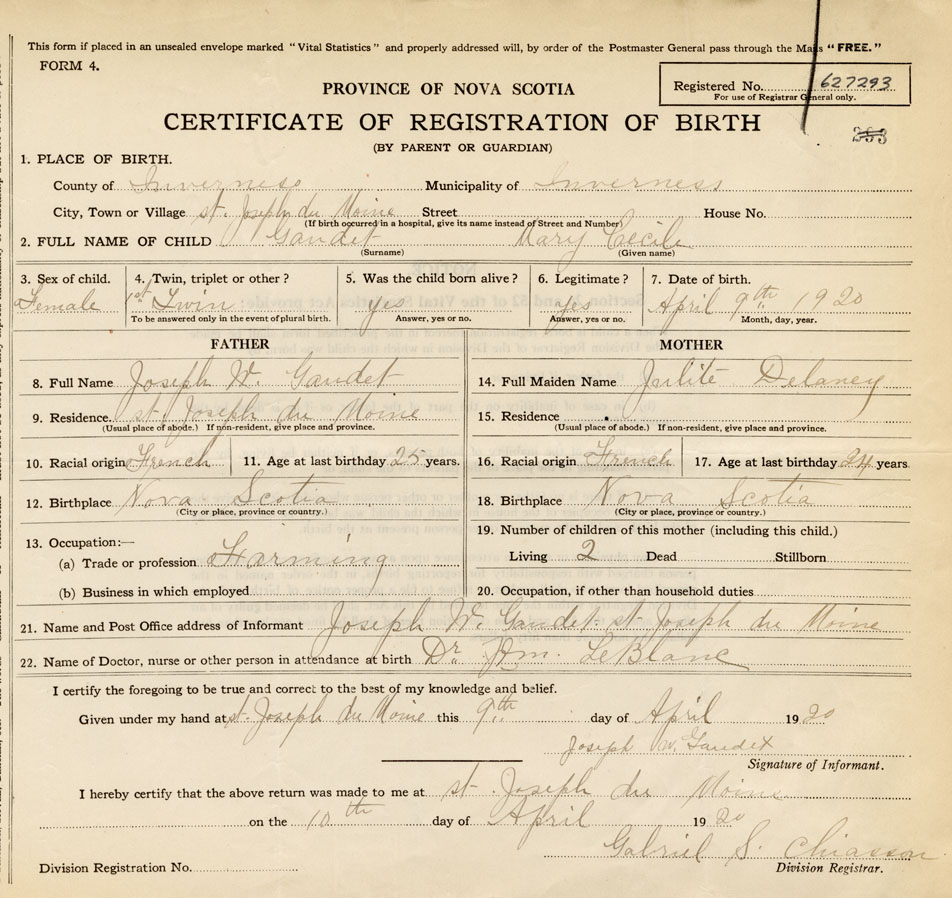 This form if placed in an unsealed envelope marked "Vital Statistics" and properly addressed will, by order of the Postmaster General pass through the Mails "FREE."
FORM 4.
Registered No. 627293
For use of Registrar General only.
PROVINCE OF NOVA SCOTIA
CERTIFICATE OF REGISTRATION OF BIRTH
(BY PARENT OR GUARDIAN)
1. PLACE OF BIRTH.
County of Inverness Municipality of Inverness
City, Town or Village st. Joseph du Moine Street House No.
(If birth occurred in a hospital, give its name instead of Street and Number)
2. FULL NAME OF CHILD Gaudet Mary Cecile
(Surname) (Given name)
3. Sex of child. 4. Twin, triplet or other? 5. Was the child born alive? 6. Legitimate? 7. Date of birth.
Female 1st Twin yes yes April 9th 1920
To be answered only in the event of plural birth. Answer, yes or no. Answer, yes or no. Month, day, year.
FATHER MOTHER
8. Full Name Joseph W. Gaudet 14. Full Maiden Name Julite Delaney
9. Residence. st. Joseph du Moine 15. Residence
(Usual place of abode.) If non-resident, give place and province. (Usual place of abode.) If non-resident, give place and province.
10. Racial origin French 11. Age at last birthday 25 years. 16. Racial origin French 17. Age at last birthday 24 years.
12. Birthplace Nova Scotia 18. Birthplace Nova Scotia
(City or place, province or country.) (City or place, province or country.)
19. Number of children of this mother (including this child.)
13. Occupation:—
(a) Trade or profession Farming Living 2 Dead Stillborn
(b) Business in which employed 20. Occupation, if other than household duties
21. Name and Post Office address of Informant Joseph W. Gaudet- st- Joseph du Moine
22. Name of Doctor, nurse or other person in attendance at birth Dr. LeBlanc
I certify the foregoing to be true and correct to the best of my knowledge and belief.
Given under my hand at st. Joseph du Moine this 9th day of April 1920
Joseph W. Gaudet
Signature of Informant.
I hereby certify that the above return was made to me at st- Joseph du Moine
on the 10th day of April 1920
Gabriel S. Chiasson
Division Registration No. Division Registrar.